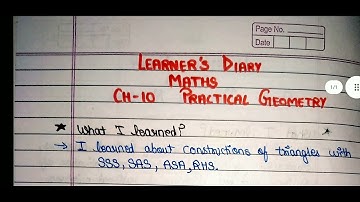 Page No.
Date
LEARNER'S DIARY
MATHS
CH-10 PRACTICAL GEOMETRY
1/1
★ What I learned? ★
→ I learned about constructions of triangles with
SSS, SAS, ASA, RHS.